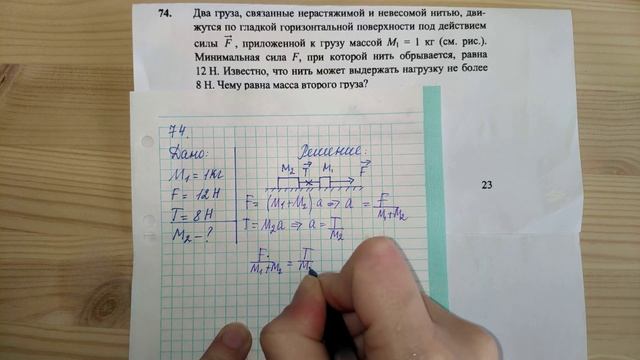 74. Два груза, связанные нерастяжимой и невесомой нитью, дви-
жутся по гладкой горизонтальной поверхности под действием
силы F⃗, приложенной к грузу массой M₁ = 1 кг (см. рис.).
Минимальная сила F, при которой нить обрывается, равна
12 Н. Известно, что нить может выдержать нагрузку не более
8 Н. Чему равна масса второго груза?
23
74.
Дано:
M₁ = 1кг
F = 12Н
T = 8Н
M₂ - ?
Решение:
M₂ T⃗ M₁ F⃗
F = (M₁+M₂) a ⇒ a = F/(M₁+M₂)
T = M₂a ⇒ a = T/M₂
F/(M₁+M₂) = T/M₂